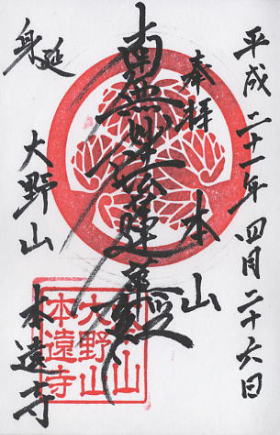 平成二十一年四月二十六日
奉拝
本山
南無妙法蓮華経
身延
大野山
本遠寺
本山
大野山
本遠寺